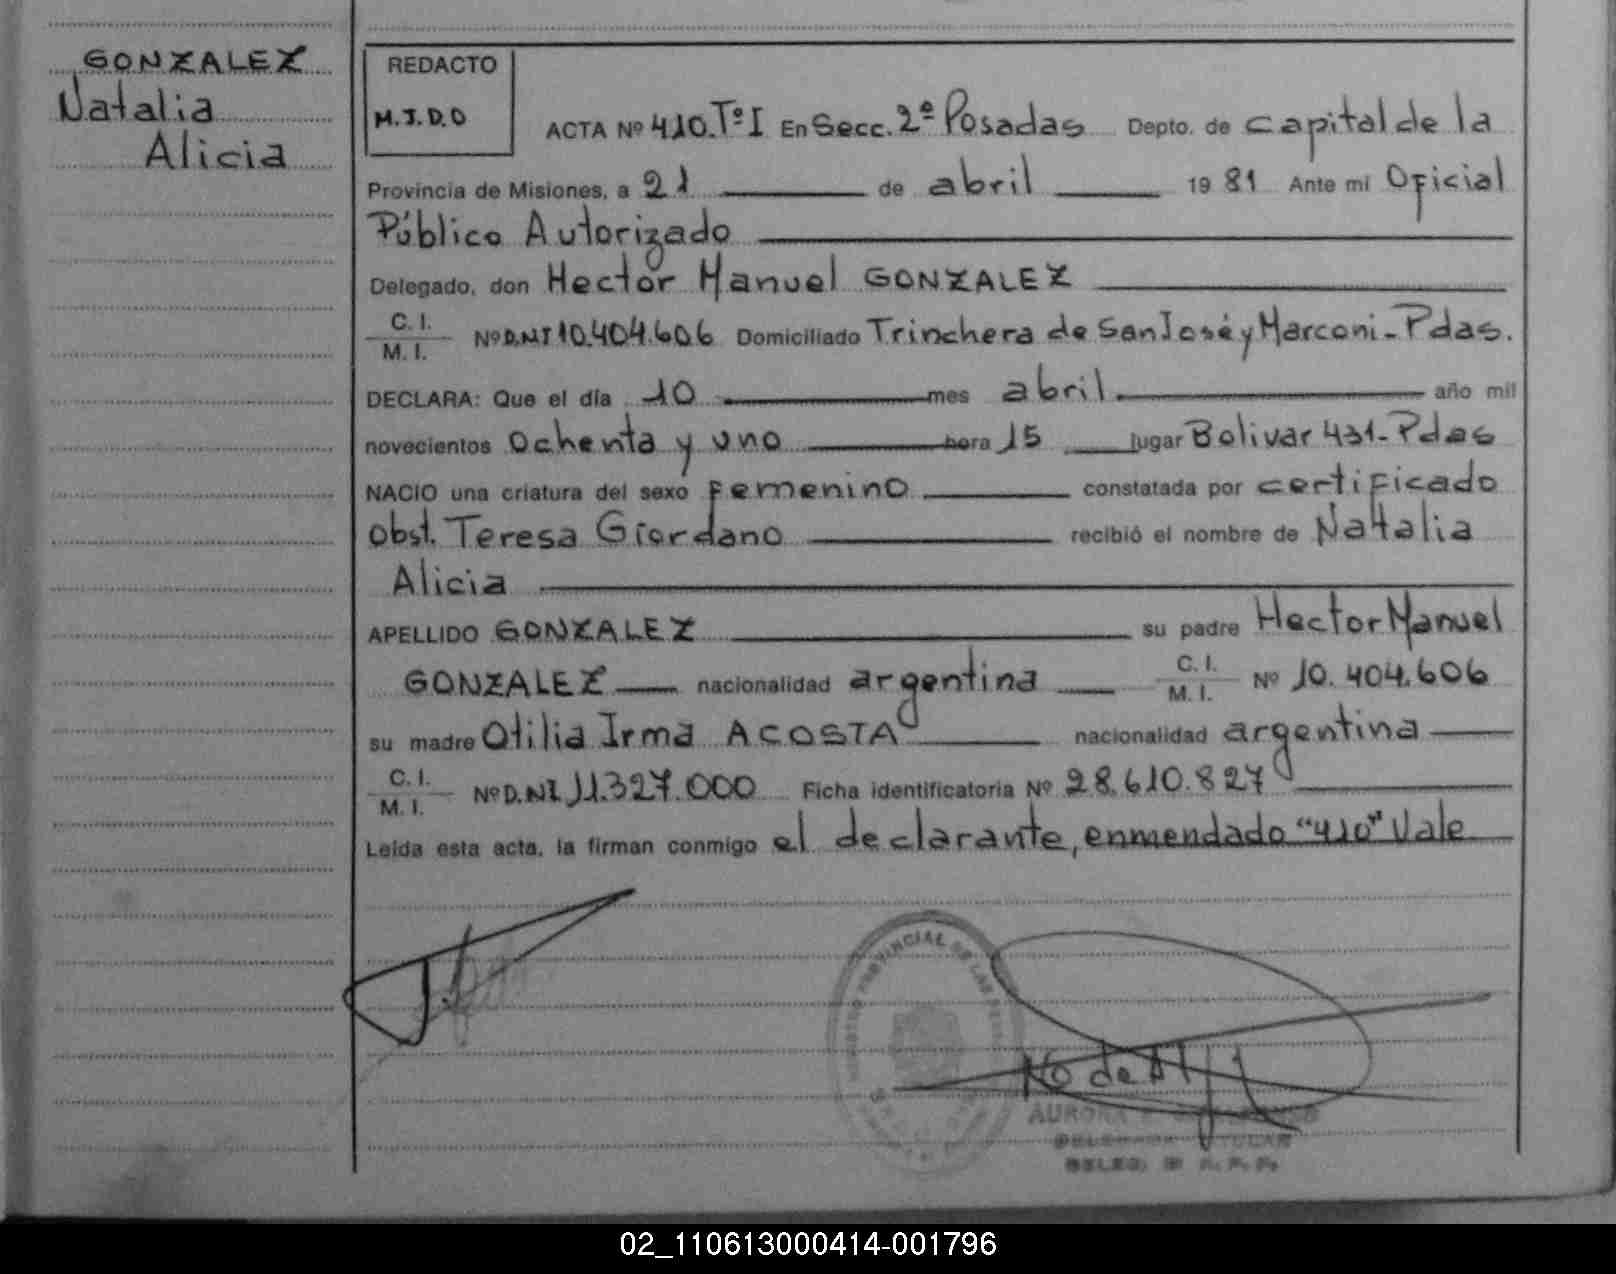 GONZALEZ
Natalia
Alicia
REDACTO
M.J.D.O
ACTA Nº 410. Tº I En Secc. 2ª Posadas Depto. de capital de la
Provincia de Misiones, a 21 de abril 19 81 Ante mi Oficial
Público Autorizado
Delegado, don Hector Manuel GONZALEZ
C. I.
M. I. Nº D.NI 10.404.606 Domiciliado Trinchera de San José y Marconi - Pdas.
DECLARA: Que el día 10 mes abril año mil
novecientos ochenta y uno hora 15 lugar Bolivar 431 - Pdas
NACIO una criatura del sexo femenino constatada por certificado
obst. Teresa Giordano recibió el nombre de Natalia
Alicia
APELLIDO GONZALEZ su padre Hector Manuel
GONZALEZ nacionalidad argentina C. I.
M. I. Nº 10.404.606
su madre Otilia Irma ACOSTA nacionalidad argentina
C. I.
M. I. Nº D.NI 11.327.000 Ficha identificatoria Nº 28.610.827
Leída esta acta, la firman conmigo el declarante, enmendado "410" Vale
PROVINCIAL DE LAS
AURORA
TITULAR
02_110613000414-001796